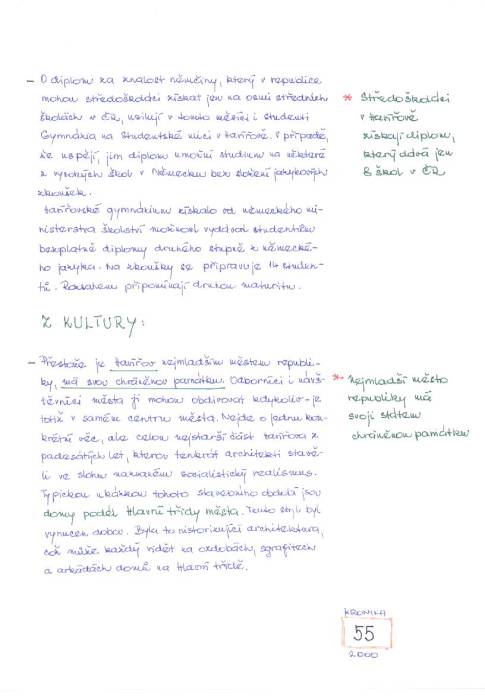 – O diplom za znalost němčiny, který v republice
mohou středoškoláci získat jen na osmi středních
školách v ČR, usilují v tomto měsíci i studenti
Gymnázia na Studentské ulici v Havířově. V případě,
že uspějí, jim diplom umožní studium na některé
z vysokých škol v Německu bez složení jazykových
zkoušek.
Havířovské gymnázium získalo od německého mi-
nisterstva školství možnost vydávat studentům
bezplatně diplomy druhého stupně z německé-
ho jazyka. Na zkoušky se připravuje 14 studen-
tů. Rozsahem připomínají druhou maturitu.
* Středoškoláci
v Havířově
získají diplom,
který dává jen
8 škol v ČR
Z KULTURY:
– Přestože je Havířov nejmladším městem republi-
ky, má svou chráněnou památku. Odborníci i návš-
těvníci města ji mohou obdivovat kdykoliv – je
totiž v samém centru města. Nejde o jednu kon-
krétní věc, ale celou nejstarší část Havířova z
padesátých let, kterou tenkrát architekti stavě-
li ve slohu nazvaném socialistický realismus.
Typickou ukázkou tohoto stavebního období jsou
domy podél Hlavní třídy města. Tento styl byl
vynucen dobou. Byla to historizující architektura,
což může každý vidět na ozdobách, sgrafitech
a arkádách domů na Hlavní třídě.
* Nejmladší město
republiky má
svoji státem
chráněnou památku
KRONIKA
55
2000